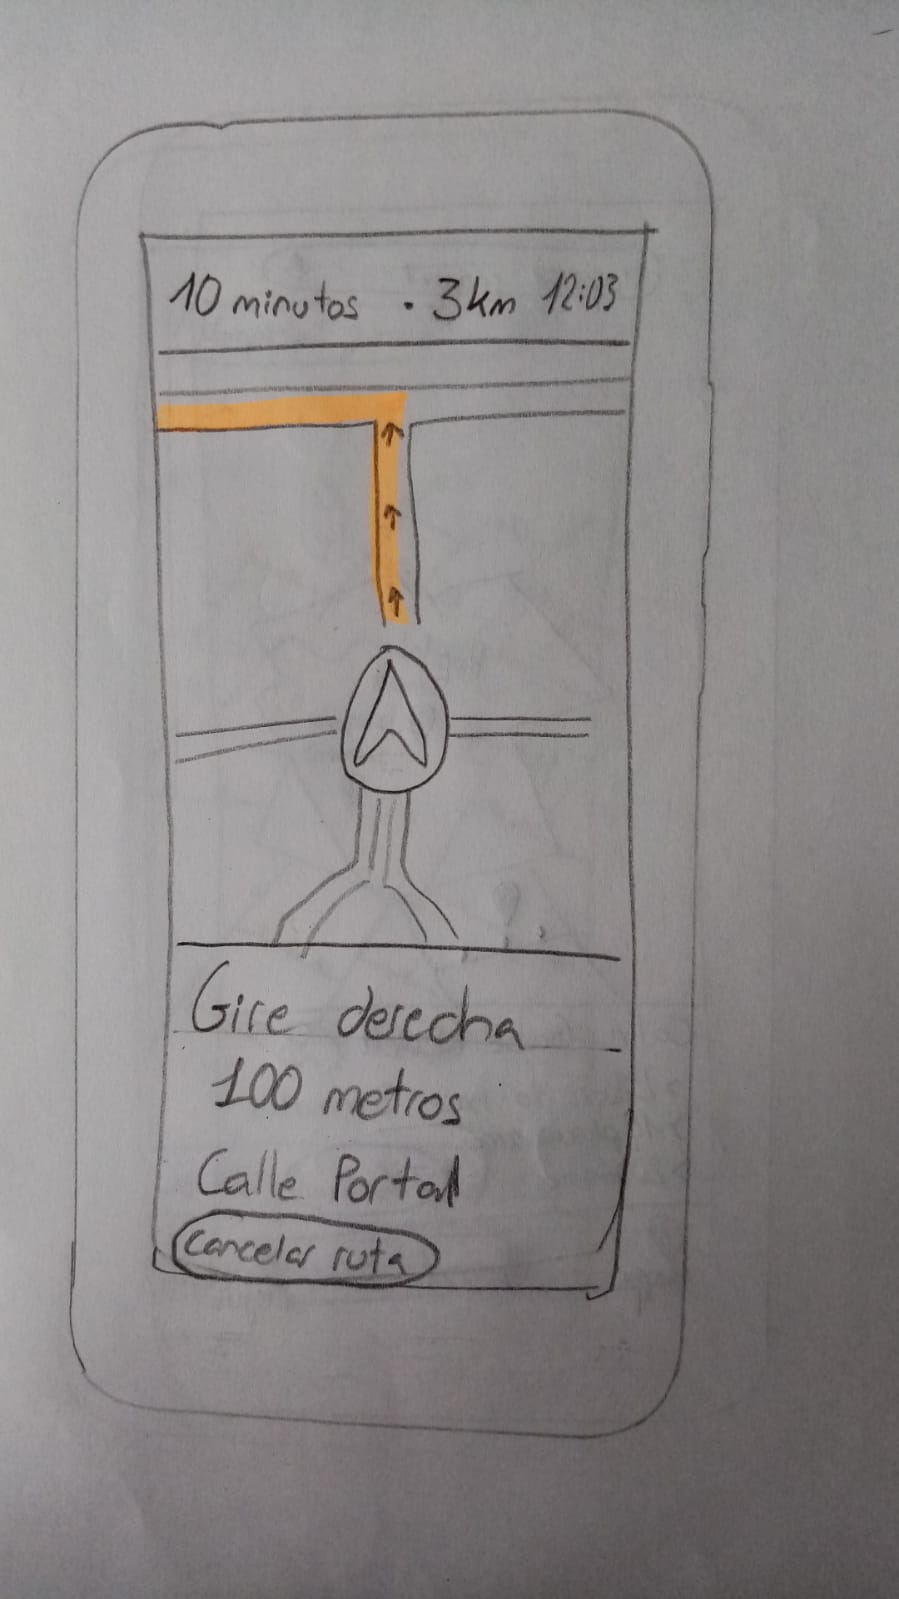 10 minutos · 3km 12:03
Gire derecha
100 metros
Calle Portal
Cancelar ruta